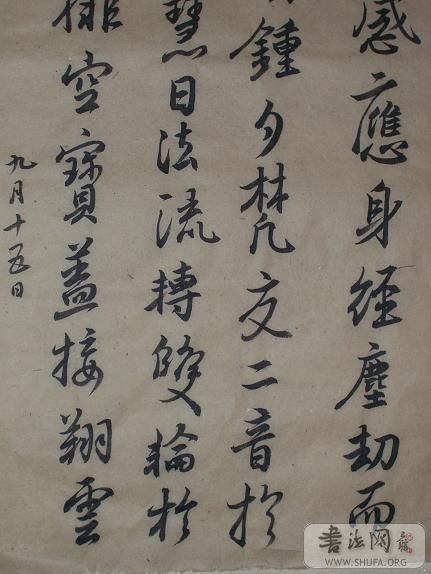 感應身經塵劫而
鍾夕梵交二音於
慧日法流轉雙輪於
排空寶蓋接翔雲
九月十五日
書法网
WWW.SHUFA.ORG